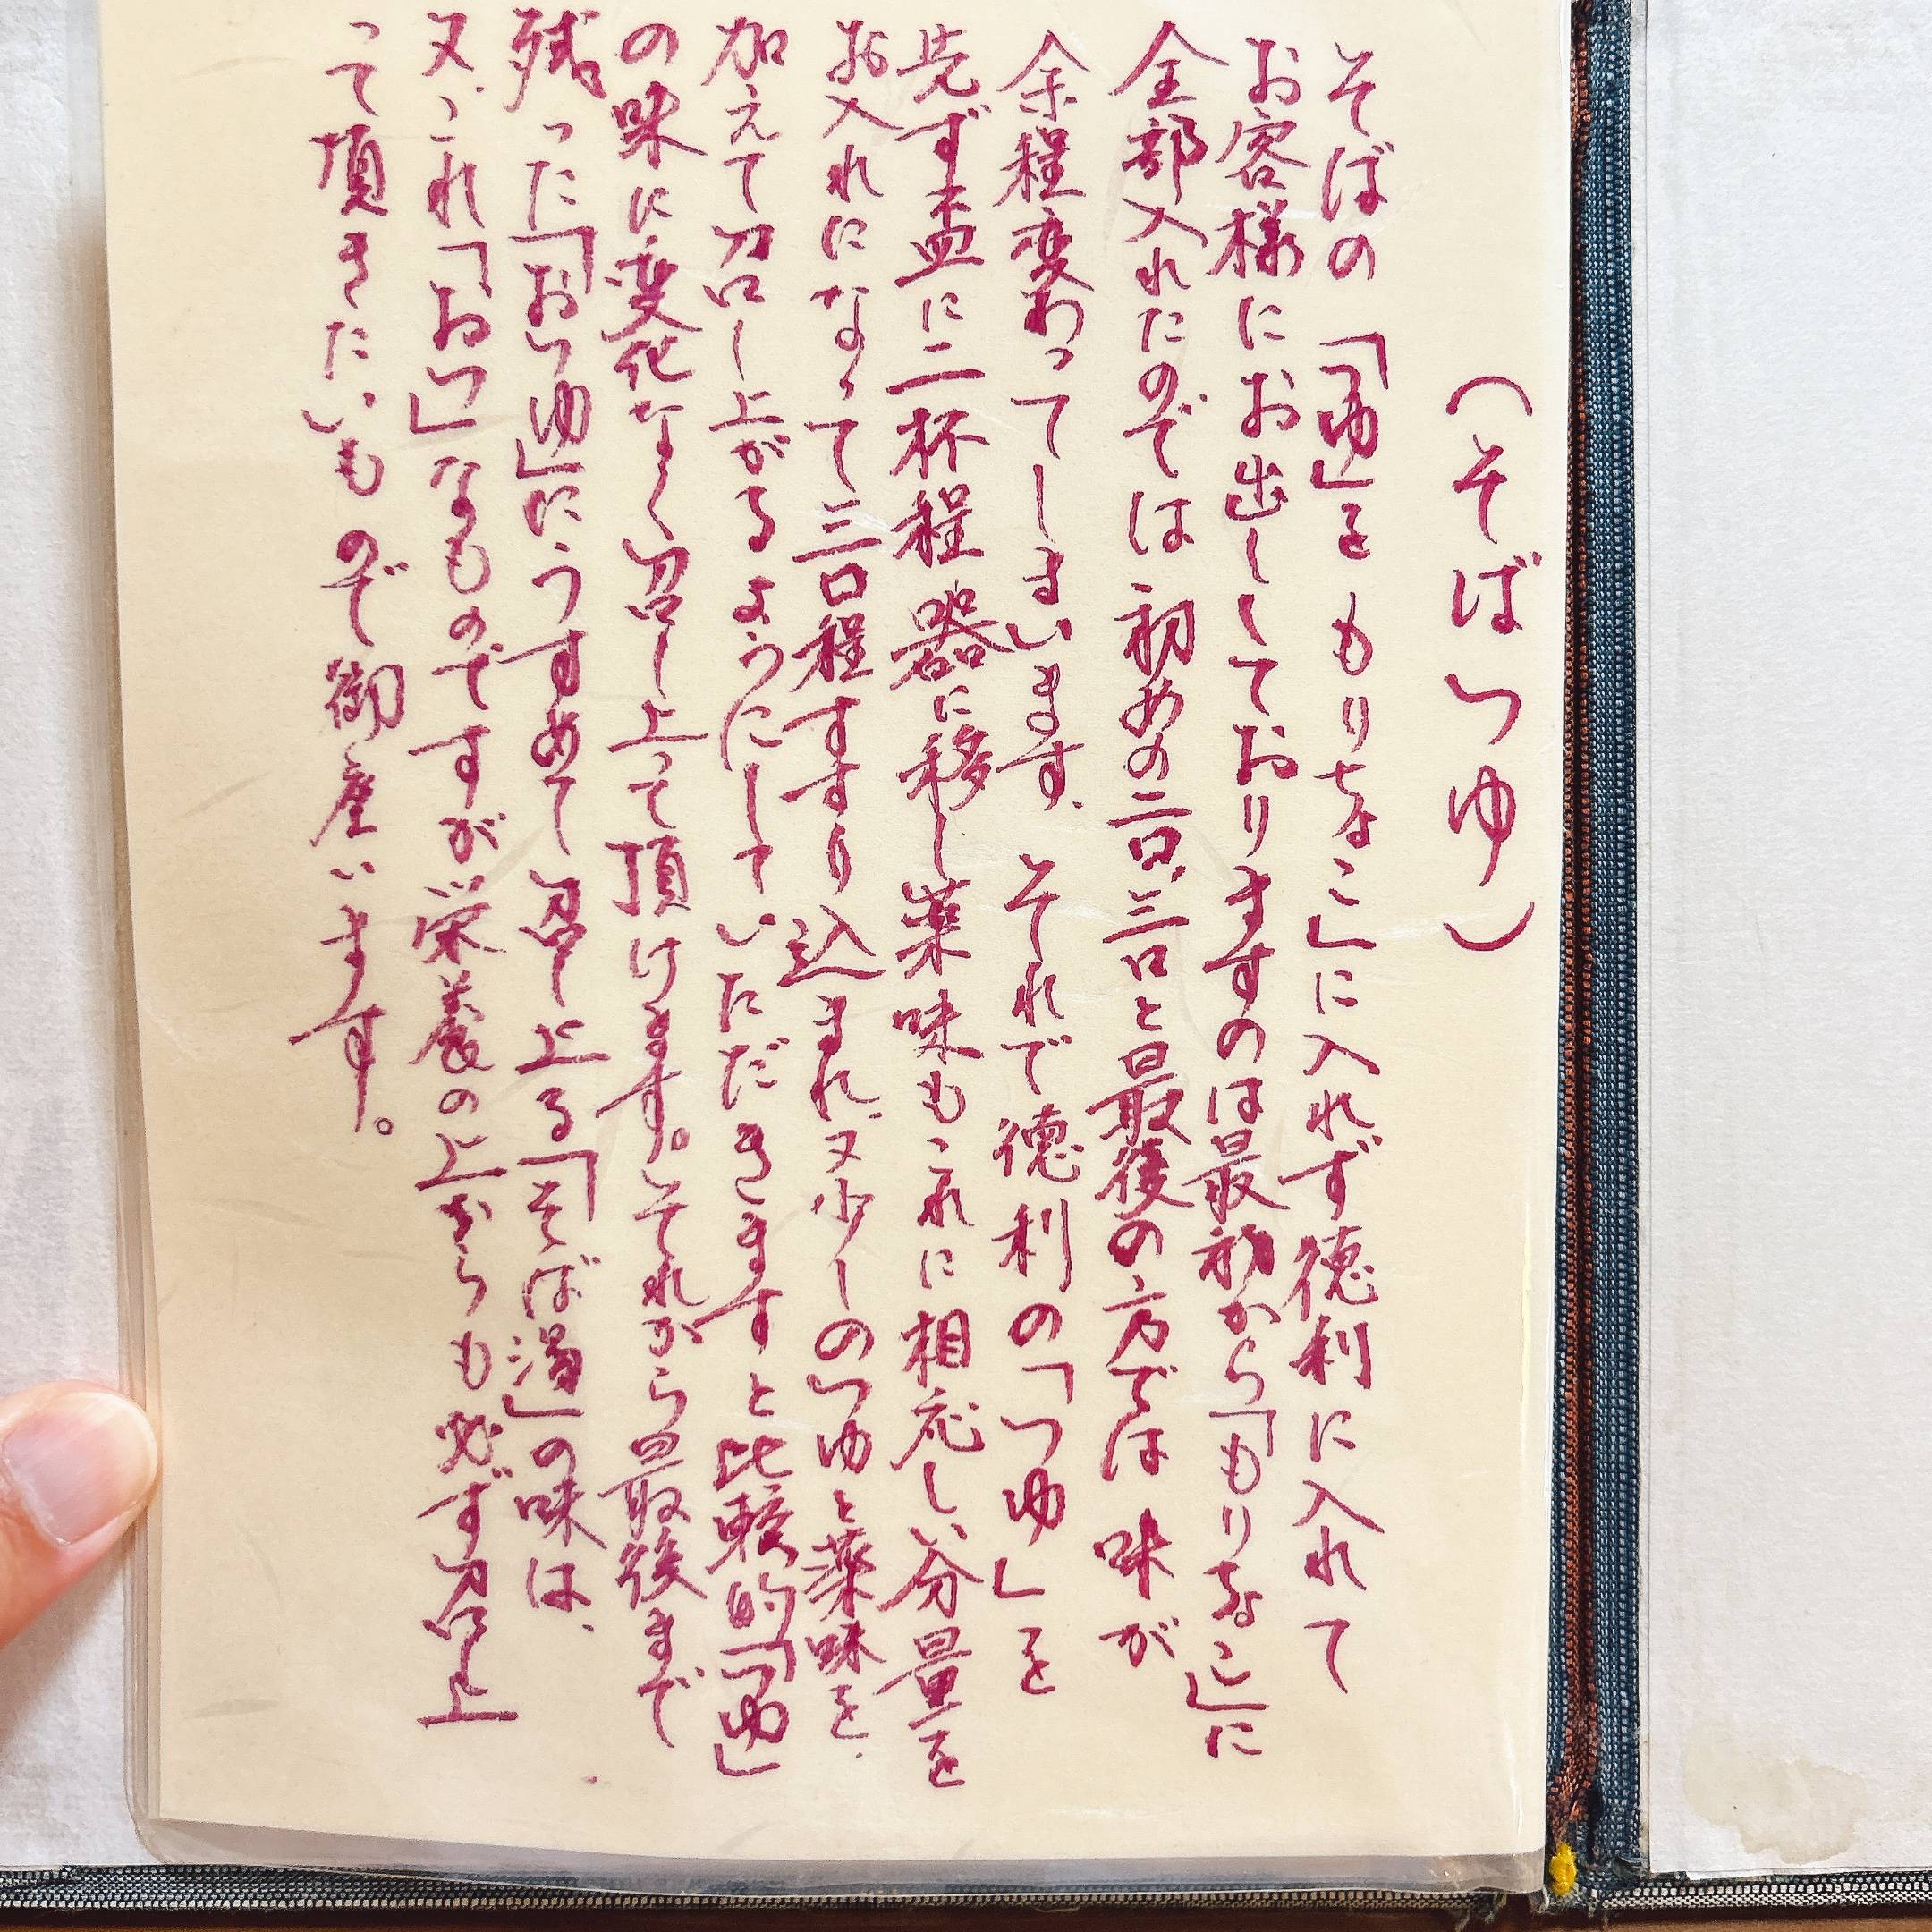 (そばつゆ)
そばの「つゆ」をもりちょこ」に入れず徳利に入れて
お客様にお出ししておりますのは最初から「もりちょこ」に
全部入れたのでは初めの二口、三口と最後の方では味が
余程変わってしまいます。それで徳利の「つゆ」を
先ず盃に二杯程器に移し薬味もこれに相応しい分量を
お入れになって三口程すすり込まれ、又少しのつゆと薬味を、
加えて召し上がるようにしていただきますと比較的「つゆ」
の味に変化なく召し上って頂けます。それから最後まで
残った「おつゆ」にうすめて召し上る「そば湯」の味は、
又、これ「おつ」なものですが栄養の上からも必ず召し上
って頂きたいもので御座います。